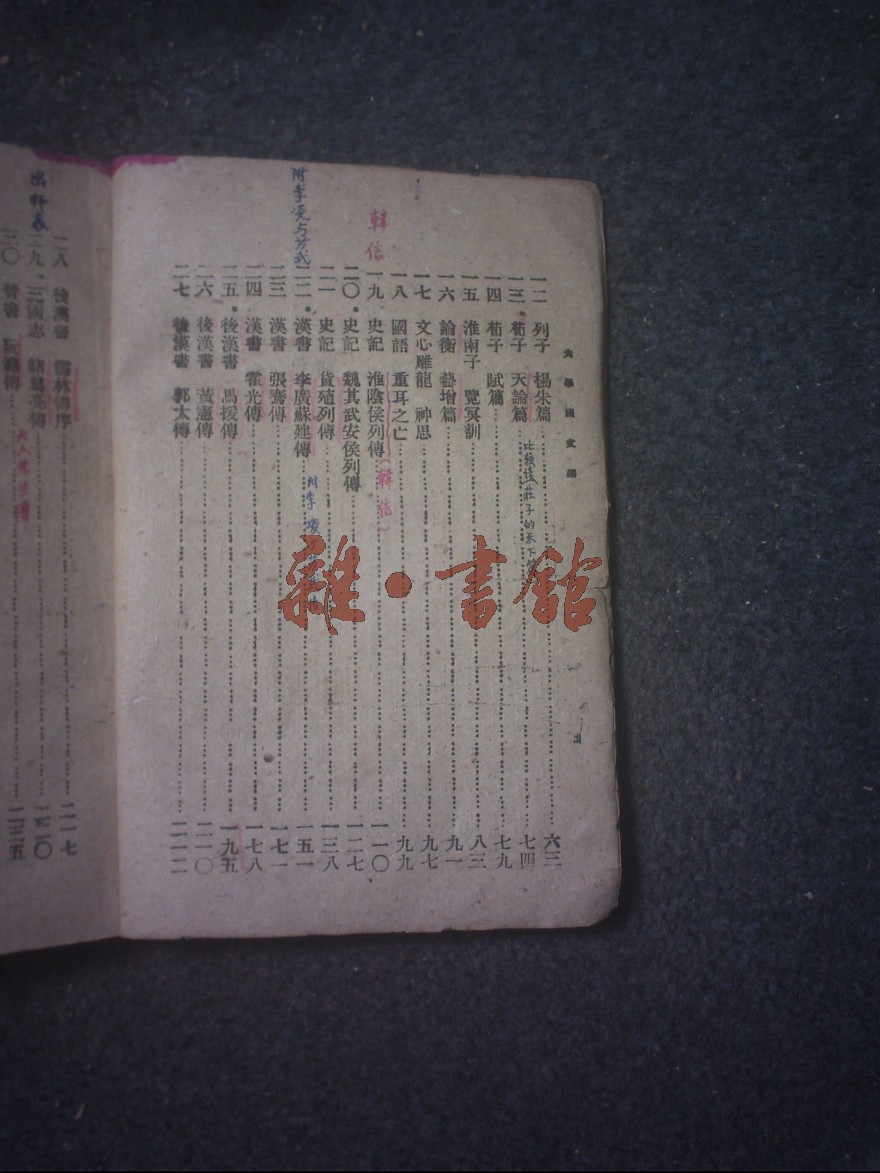 大學國文選
一二 列子 楊朱篇 六三
一三 荀子 天論篇 七四
一四 荀子 賦篇 七九
一五 淮南子 覽冥訓 八三
一六 論衡 藝增篇 九一
一七 文心雕龍 神思 九七
一八 國語 重耳之亡 九九
一九 史記 淮陰侯列傳 一一〇
韓信
二〇 史記 魏其武安侯列傳 一二七
二一 史記 貨殖列傳 一三八
二二 漢書 李廣蘇建傳 一五一
附李陵与苏武
二三 漢書 張騫傳 一七一
二四 漢書 霍光傳 一七八
二五 後漢書 馬援傳 一九五
二六 後漢書 黃憲傳 二一〇
二七 後漢書 郭太傳 二一二
二八 後漢書 儒林傳序 二一七
二九 三國志 諸葛亮傳
出師表
三〇 晉書 阮籍傳
雜·書館